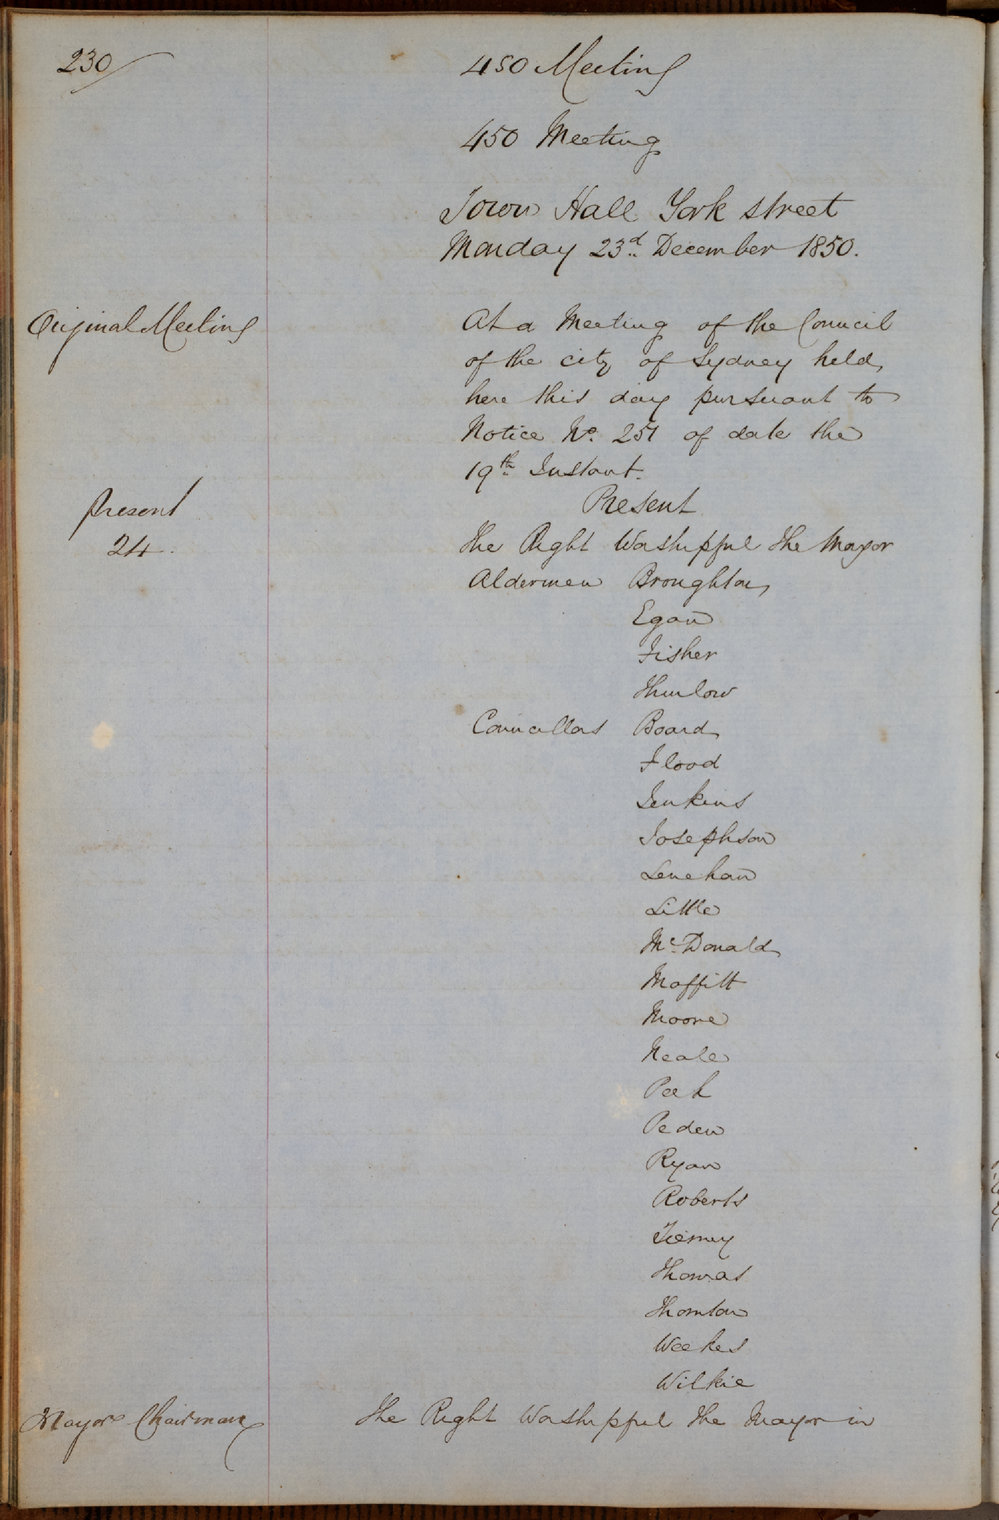 230
450 Meeting
450 Meeting
Town Hall York street
Monday 23d December 1850.
Original Meeting
At a Meeting of the Council
of the city of Sydney held
here this day pursuant to
Notice No. 251 of date the
19th Instant.
Present
Present
24.
The Right Worshipful the Mayor
Aldermen Broughton
Egan
Fisher
Thurlow
Councillors Board
Flood
Jenkins
Josephson
Lenehan
Little
McDonald
Moffitt
Moore
Neale
Peek
Peden
Ryan
Roberts
Tierney
Thomas
Thornton
Weekes
Wilkie
Mayor Chairman
The Right Worshipful the Mayor in